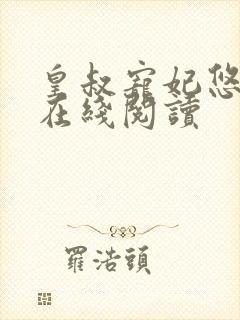 皇叔寵妃悠
在綫閱讀
羅浩頭